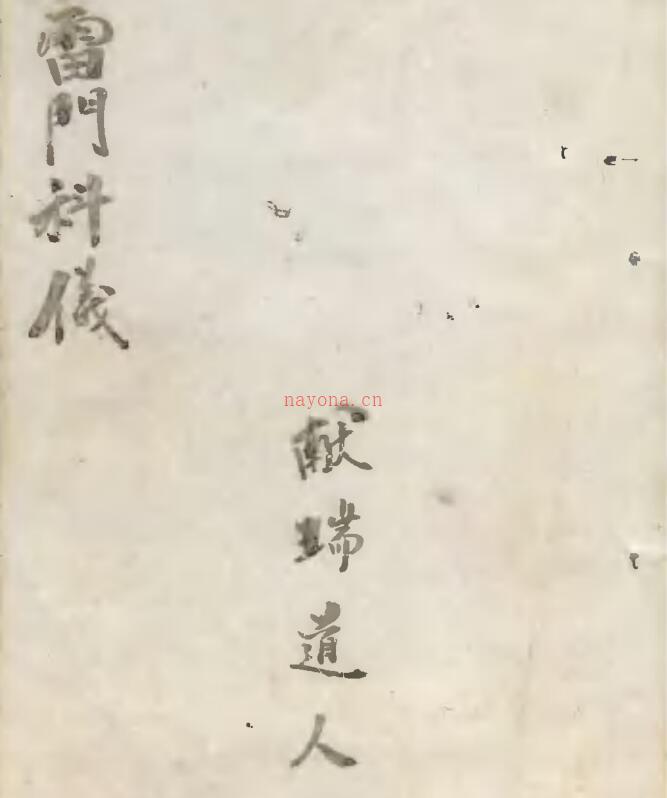 雷門科儀
献瑞道人
nayona.cn